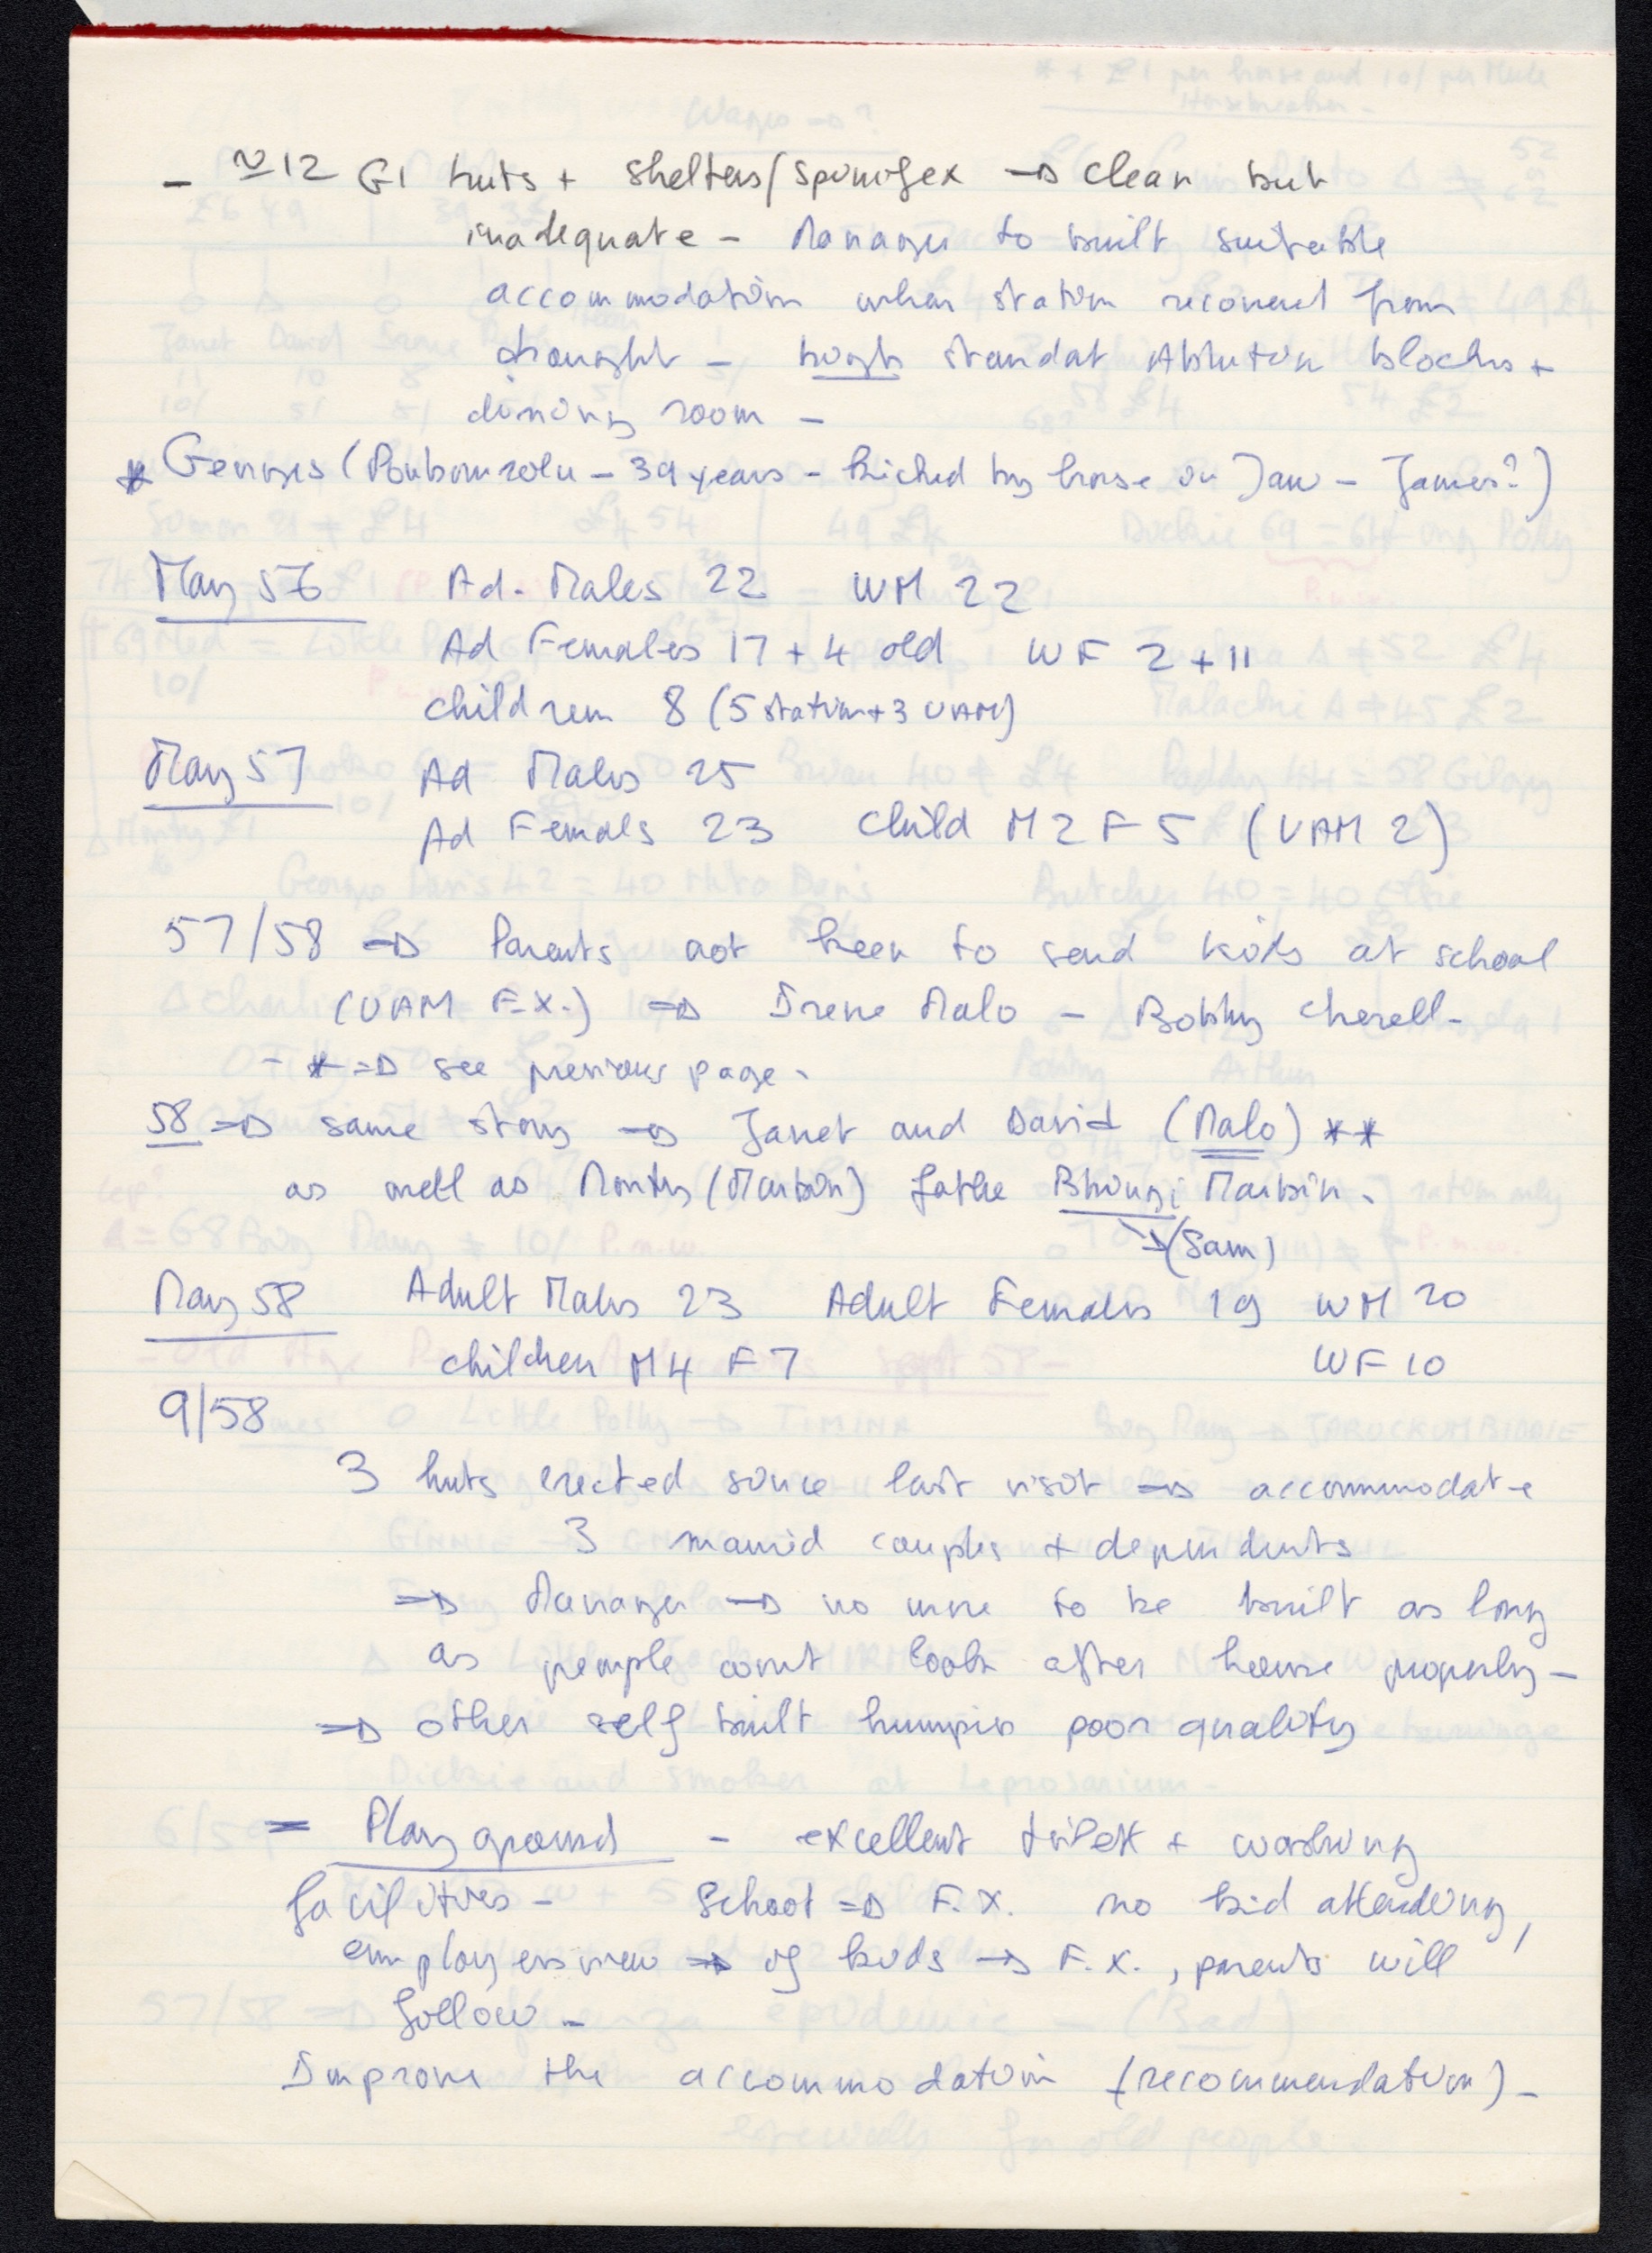 - ≃12 GI huts + shelters/spinifex → clean but
inadequate - Manager to built suitable
accommodation when station recovered from
drought - high standat Ablution blocks +
dining room -
* Georges ( - 39 years - kicked by horse on Jaw - James?)
May 56 Ad. Males 22 WM 22
Ad Females 17 + 4 old WF 2 + 11
children 8 (5 station + 3 UAM)
May 57 Ad Males 25
Ad Femals 23 Child M2 F5 (UAM 2)
57/58 → Parents not keen to send kids at school
(UAM F.X.) ⇒ Irene Malo - Bobby Cherell -
- * ⇒ see previous page -
58 ⇒ same story → Janet and David (Malo) **
as well as Monty (Martin) fathe Martin.
→ (Sam)
May 58 Adult Males 23 Adult Females 19 WM 20
children M4 F7 WF 10
9/58
3 huts erected since last visit → accommodate
3 married couples + dependents
⇒ Manager → no more to be built as long
as people wont look after house properly -
⇒ other self built humpies poor quality
= Playground - excellent toilet + washing
facilities - School ⇒ F.X. no kid attending,
employers view → if kids → F.X., parents will
follow -
Improve the accommodation (recommendation) -